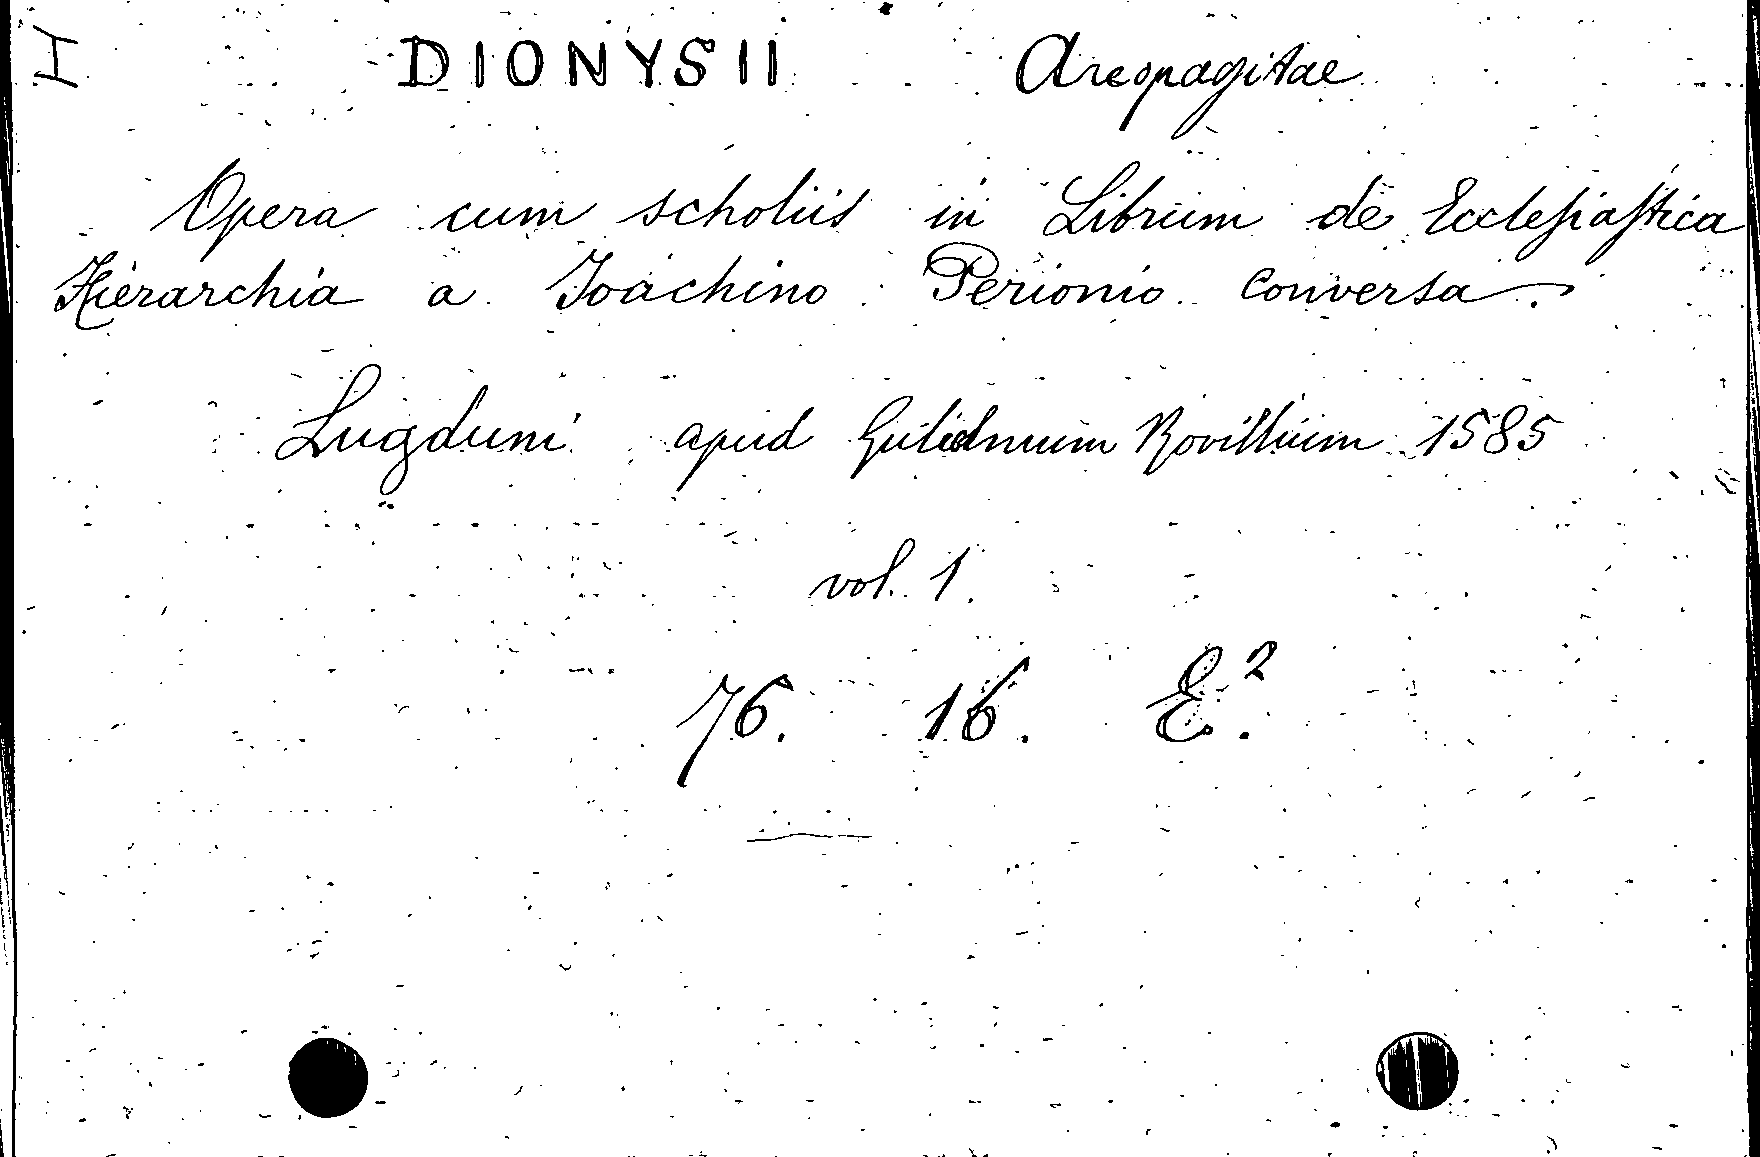 I DIONYSII Areopagitae
Opera cum scholiis in Librum de Ecclesiastica
Hierarchia a Joachino Perionio conversa.
Lugduni apud Gulielmum Rovillium 1585
vol. 1.
76. 16. E.²